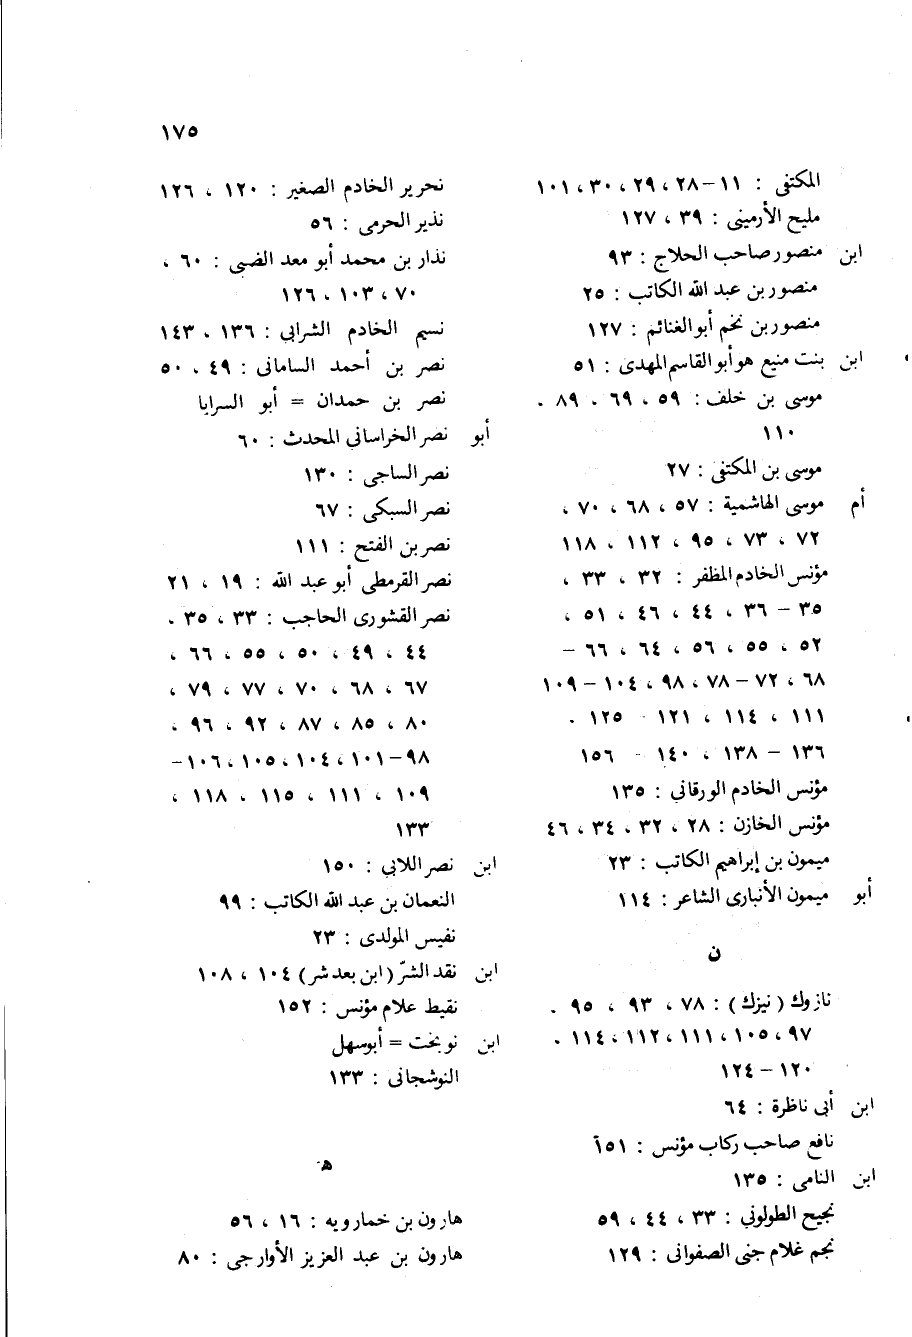 ١٧٥
المكتفى : ١١ – ٢٨ ، ٢٩ ، ٣٠ ، ١٠١
مليح الأرمينى : ٣٩ ، ١٢٧
ابن منصور صاحب الحلاج : ٩٣
منصور بن عبد الله الكاتب : ٢٥
منصور بن نخم أبو الغنائم : ١٢٧
ابن بنت منيع هو أبو القاسم المهدى : ٥١
موسى بن خلف : ٥٩ ، ٦٩ ، ٨٩ ،
١١٠
موسى بن المكتفى : ٢٧
أم موسى الهاشمية : ٥٧ ، ٦٨ ، ٧٠ ،
٧٢ ، ٧٣ ، ٩٥ ، ١١٢ ، ١١٨
مؤنس الخادم المظفر : ٣٢ ، ٣٣ ،
٣٥ – ٣٦ ، ٤٤ ، ٤٦ ، ٥١ ،
٥٢ ، ٥٥ ، ٥٦ ، ٦٤ ، ٦٦ –
٦٨ ، ٧٢ – ٧٨ ، ٩٨ ، ١٠٤ – ١٠٩
١١١ ، ١١٤ ، ١٢١ - ١٢٥ ،
١٣٦ – ١٣٨ ، ١٤٠ - ١٥٦
مؤنس الخادم الورقاني : ١٣٥
مؤنس الخازن : ٢٨ ، ٣٢ ، ٣٤ ، ٤٦
ميمون بن إبراهيم الكاتب : ٢٣
أبو ميمون الأنبارى الشاعر : ١١٤
ن
نازوك ( نيزك ) : ٧٨ ، ٩٣ ، ٩٥ ،
٩٧ ، ١٠٥ ، ١١١ ، ١١٢ ، ١١٤ ،
١٢٠ – ١٢٤
ابن أبى ناظرة : ٦٤
نافع صاحب ركاب مؤنس : ١٥١
ابن النامى : ١٣٥
نجيح الطولوني : ٣٣ ، ٤٤ ، ٥٩
نجم غلام جنى الصفوانى : ١٢٩
نحرير الخادم الصغير : ١٢٠ ، ١٢٦
نذير الحرمى : ٥٦
نذار بن محمد أبو معد الضبى : ٦٠ ،
٧٠ ، ١٠٣ ، ١٢٦
نسيم الخادم الشرابي : ١٣٦ ، ١٤٣
نصر بن أحمد السامانى : ٤٩ ، ٥٠
نصر بن حمدان = أبو السرايا
أبو نصر الخراساني المحدث : ٦٠
نصر الساجى : ١٣٠
نصر السبكى : ٦٧
نصر بن الفتح : ١١١
نصر القرمطى أبو عبد الله : ١٩ ، ٢١
نصر القشورى الحاجب : ٣٣ ، ٣٥ ،
٤٤ ، ٤٩ ، ٥٠ ، ٥٥ ، ٦٦ ،
٦٧ ، ٦٨ ، ٧٠ ، ٧٧ ، ٧٩ ،
٨٠ ، ٨٥ ، ٨٧ ، ٩٢ ، ٩٦ ،
٩٨ – ١٠١ ، ١٠٤ ، ١٠٥ ، ١٠٦ –
١٠٩ ، ١١١ ، ١١٥ ، ١١٨ ،
١٣٣
ابن نصر اللابي : ١٥٠
النعمان بن عبد الله الكاتب : ٩٩
نفيس المولدى : ٢٣
ابن نقد الشرّ ( ابن بعد شر ) ١٠٤ ، ١٠٨
نقيط علام مؤنس : ١٥٢
ابن نوبخت = أبو سهل
النوشجانى : ١٣٣
هـ
هارون بن خمارويه : ١٦ ، ٥٦
هارون بن عبد العزيز الأوارجى : ٨٠